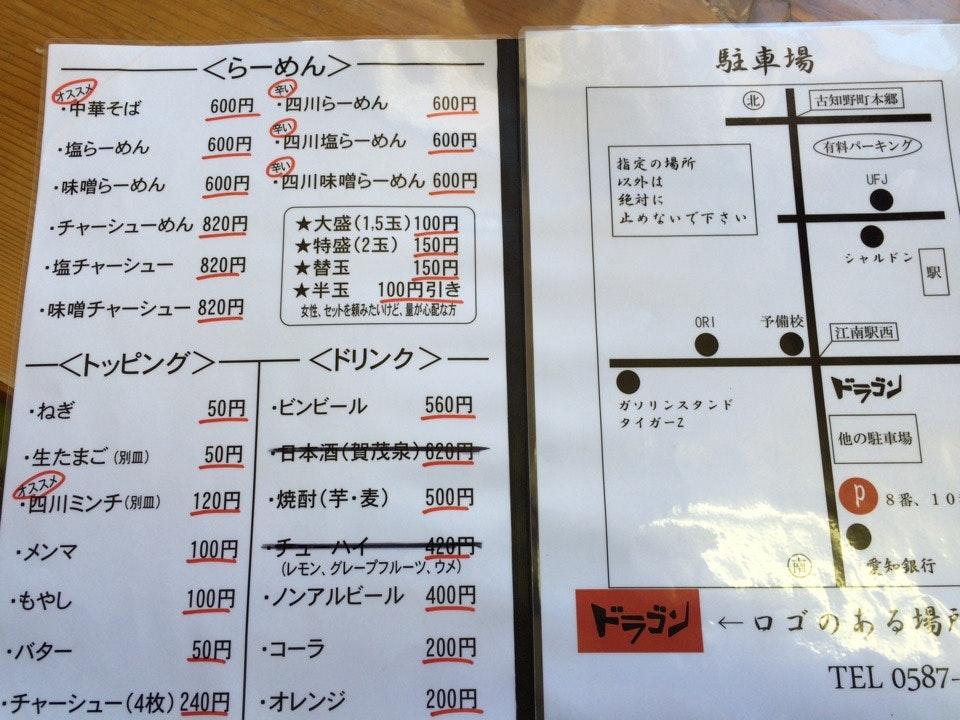 <らーめん>
オススメ
・中華そば 600円
・塩らーめん 600円
・味噌らーめん 600円
・チャーシューめん 820円
・塩チャーシュー 820円
・味噌チャーシュー 820円
辛い
・四川らーめん 600円
辛い
・四川塩らーめん 600円
辛い
・四川味噌らーめん 600円
★大盛(1,5玉) 100円
★特盛(2玉) 150円
★替玉 150円
★半玉 100円引き
女性、セットを頼みたいけど、量が心配な方
<トッピング>
・ねぎ 50円
・生たまご(別皿) 50円
オススメ
・四川ミンチ(別皿) 120円
・メンマ 100円
・もやし 100円
・バター 50円
・チャーシュー(4枚) 240円
<ドリンク>
・ビンビール 560円
・日本酒(賀茂泉) 620円
・焼酎(芋・麦) 500円
・チューハイ 420円
(レモン、グレープフルーツ、ウメ)
・ノンアルビール 400円
・コーラ 200円
・オレンジ 200円
駐車場
北
古知野町本郷
有料パーキング
指定の場所
以外は
絶対に
止めないで下さい
UFJ
シャルドン
駅
ORI
予備校
江南駅西
ガソリンスタンド
タイガーZ
ドラゴン
他の駐車場
P
8番、10
南
愛知銀行
ドラゴン ←ロゴのある場所
TEL 0587-